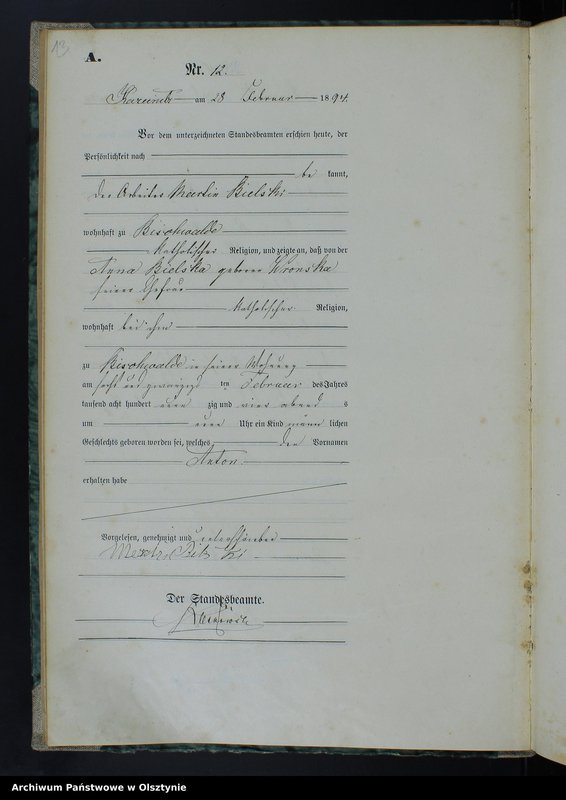 13
A.
Nr. 12.
am 28 Februar 1894.
Vor dem unterzeichneten Standesbeamten erschien heute, der
Persönlichkeit nach
be kannt,
der Arbeiter Martin Bielski
wohnhaft zu Bischwalde
katholischer Religion, und zeigte an, daß von der
Anna Bielska geborene Wronska
seiner Ehefrau
katholischer Religion,
wohnhaft bei ihm
zu Bischwalde in seiner Wohnung
am sechs und zwanzigsten ten Februar des Jahres
tausend acht hundert neun zig und vier abend s
um neun Uhr ein Kind männ lichen
Geschlechts geboren worden sei, welches den Vornamen
Anton.
erhalten habe
Vorgelesen, genehmigt und unterschrieben
Der Standesbeamte.
Archiwum Państwowe w Olsztynie